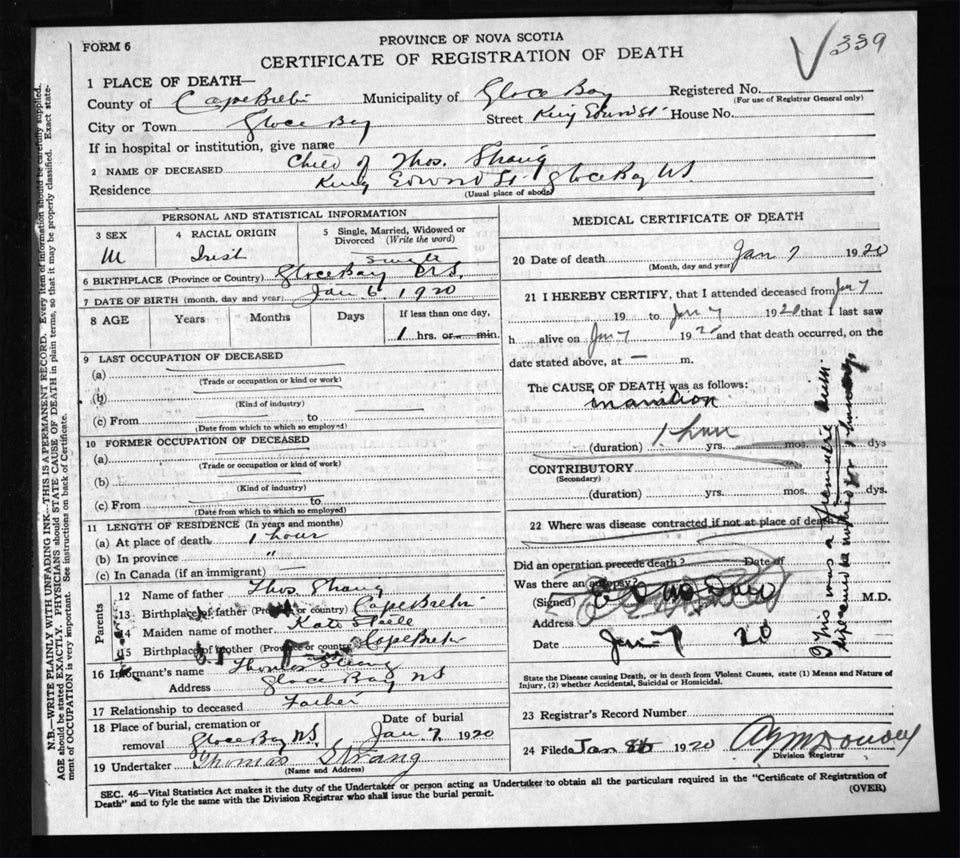 V 339
PROVINCE OF NOVA SCOTIA
FORM 6
CERTIFICATE OF REGISTRATION OF DEATH
1 PLACE OF DEATH—
County of Cape Breton Municipality of Glace Bay Registered No.
(For use of Registrar General only)
City or Town Glace Bay Street King Edward St House No.
If in hospital or institution, give name
2 NAME OF DECEASED Child of Thos. Strang
Residence King Edward St Glace Bay N.S.
(Usual place of abode)
PERSONAL AND STATISTICAL INFORMATION
3 SEX 4 RACIAL ORIGIN 5 Single, Married, Widowed or
Divorced (Write the word)
M Irish single
6 BIRTHPLACE (Province or Country) Glace Bay N.S.
7 DATE OF BIRTH (month, day and year) Jan 6. 1920
8 AGE Years Months Days If less than one day,
1 hrs. or min.
9 LAST OCCUPATION OF DECEASED
(a)
(Trade or occupation or kind or work)
(b)
(Kind of industry)
(c) From to
(Date from which to which so employed)
10 FORMER OCCUPATION OF DECEASED
(a)
(Trade or occupation or kind of work)
(b)
(Kind of industry)
(c) From to
(Date from which to which so employed)
11 LENGTH OF RESIDENCE (In years and months)
(a) At place of death 1 hour
(b) In province "
(c) In Canada (if an immigrant) —
Parents
12 Name of father Thos Strang
13 Birthplace of father (Province or country) Cape Breton
14 Maiden name of mother Kate Steele
15 Birthplace of mother (Province or country) Cape Breton
16 Informant's name Thomas Strang
Address Glace Bay NS
17 Relationship to deceased Father
18 Place of burial, cremation or Date of burial
removal Glace Bay N.S. Jan 7 1920
19 Undertaker Thomas Strang
(Name and Address)
MEDICAL CERTIFICATE OF DEATH
20 Date of death Jan 7 1920
(Month, day and year)
21 I HEREBY CERTIFY, that I attended deceased from Jan 7
19 to Jan 7 1920 that I last saw
h alive on Jan 7 1920 and that death occurred, on the
date stated above, at — m.
The CAUSE OF DEATH was as follows:
Inanation
(duration) 1 hour yrs. mos. dys
CONTRIBUTORY
(Secondary)
(duration) yrs. mos. dys.
22 Where was disease contracted if not at place of death
Did an operation precede death? Date of
Was there an autopsy?
(Signed) M.D.
Address
Date Jan 7 20
This was a premature birth.
State the Disease causing Death, or in death from Violent Causes, state (1) Means and Nature of
Injury, (2) whether Accidental, Suicidal or Homicidal.
23 Registrar's Record Number
24 Filed Jan 8th 1920
Division Registrar
SEC. 46—Vital Statistics Act makes it the duty of the Undertaker or person acting as Undertaker to obtain all the particulars required in the "Certificate of Registration of
Death" and to fyle the same with the Division Registrar who shall issue the burial permit.
(OVER)
N.B.—WRITE PLAINLY WITH UNFADING INK—THIS IS A PERMANENT RECORD. Every item of information should be carefully supplied.
AGE should be stated EXACTLY. PHYSICIANS should STATE CAUSE OF DEATH in plain terms, so that it may be properly classified. Exact state-
ment of OCCUPATION is very important. See instructions on back of Certificate.